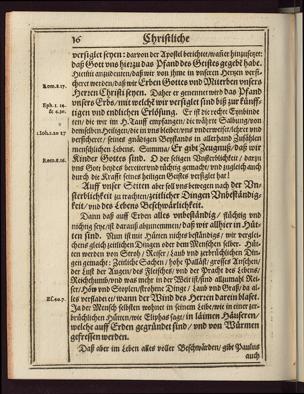 36 Christliche
versiglet seyen: darvon der Apostel berichtet / wañer hinzusetzet:
daß Gott uns hierzu das Pfand des Geistes gegeben habe.
Hiemit anzudeuten / daß wir von ihme in unseren Hertzen versi-
cheret werden / daß wir Erben Gottes und Miterben unsers
Rom. 8. 17.
Herren Christi seyen. Daher er genennet wird das Pfand
unsers Erbs / mit welchem wir versiglet sind biß zur künff-
Eph. 1. 14.
& 4. 30.
tigen und endlichen Erlösung. Er ist die rechte
die wir im H. Tauff empfangen / die währte Salbung von
demselben Heiligen / die in uns bleibet / uns underweiset / lehret und
1. Joh. 2. 20 27
versicheret / seines gnädigen Beystands in allerhand Zufählen
menschlichen Lebens. Summa / Er gibt Zeugnuß / daß wir
Kinder Gottes sind. O der seligen Unsterblichkeit / darzu
Rom. 8. 16.
uns Gott beydes bereitet und düchtig gemacht / und zugleich auch
durch die Kraft seines heiligen Geistes versiglet hat!
Auff unser Seiten aber soll uns bewegen nach der Un-
sterblichkeit zu trachten / zeitlicher Dingen Unbeständig-
keit / und des Lebens Beschwärlichkeit.
Dann daß auff Erden alles unbeständig / flüchtig und
nichtig seye / ist darauß abzunemmen / daß wir allhier in Hüt-
ten sind. Nun ist mit Hütten nichts beständiges / wir verglei-
chens gleich zeitlichen Dingen oder dem Menschen selber. Hüt-
ten werden von Stroh / Reiser / Laub und zerbrüchlichen Din-
gen gemacht: Zeitliche Sachen / hohe Palläst / grosse Ansehen /
der Lust der Augen / des Fleisches / und der Pracht des Lebens /
Reichthumb / und was mehr in der Welt ist / sind allzumahl Rei-
ser / Höw und Stopflen / strohene Dinge / Laub und Graß / da al-
les verfallet / wann der Wind des Herren darein blaset.
Es. 40. 7.
Ja der Mensch selbsten wohnet in seinem Leibe / wie in einer zer-
brüchlichen Hütten / wie Eliphas sagt / in laimen Häuseren /
welche auff Erden gegründet sind / und von Würmen
gefressen werden.
Daß aber im Leben alles voller Beschwärden / gibt Paulus
auch